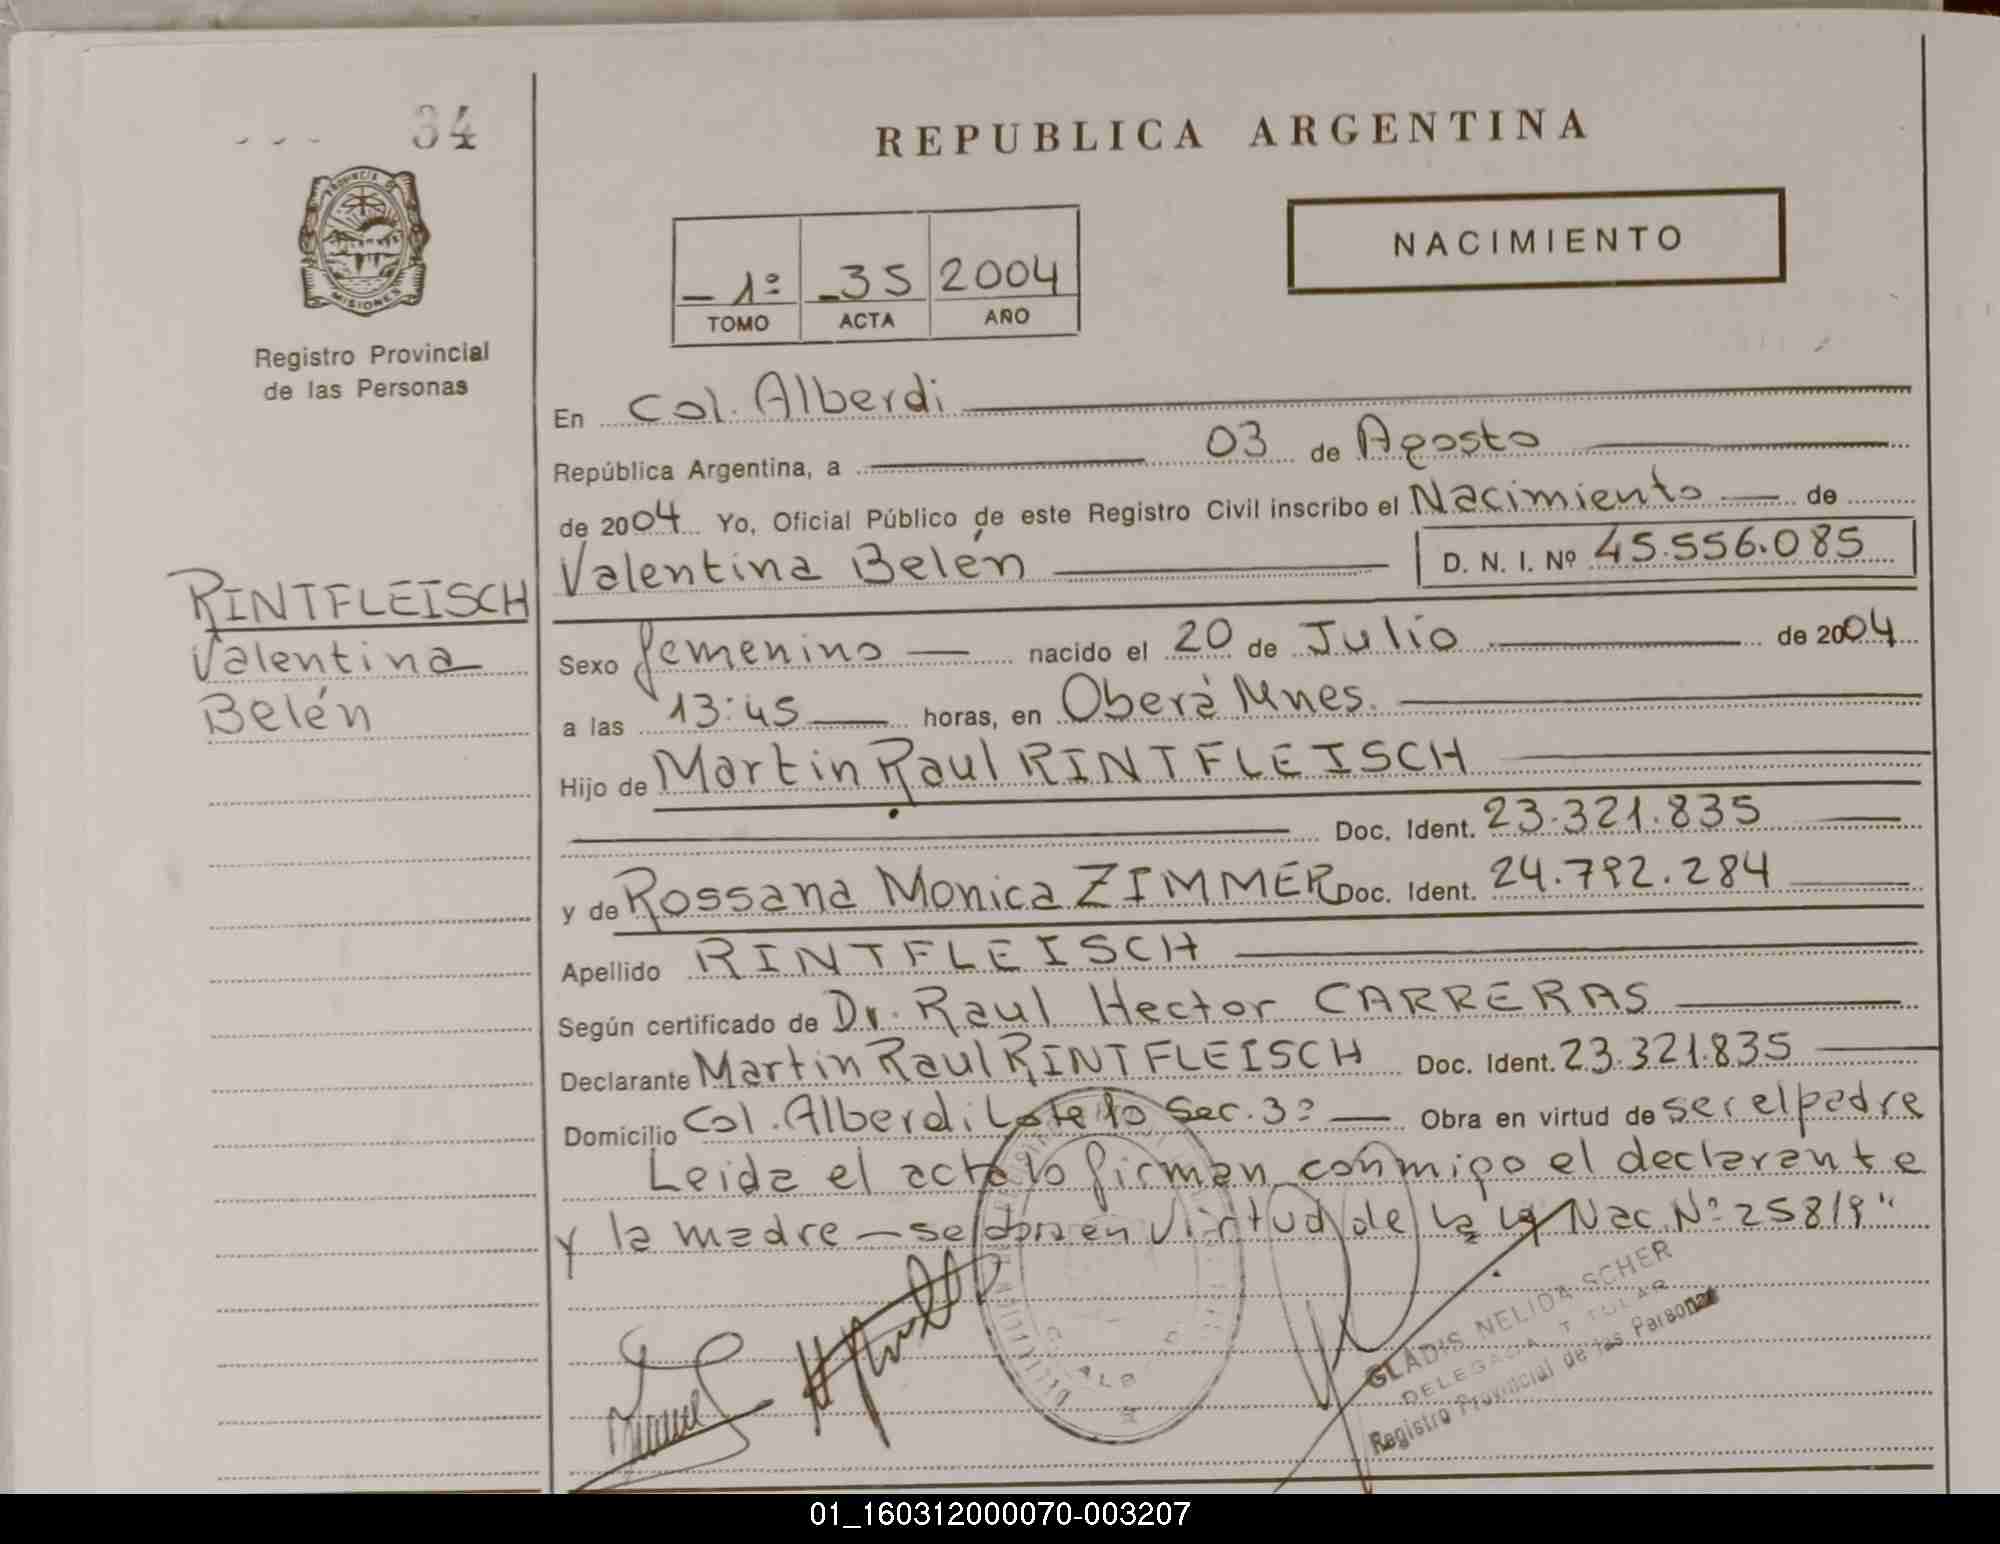 34
REPUBLICA ARGENTINA
NACIMIENTO
PROVINCIA DE
MISIONES
Registro Provincial
de las Personas
1º 35 2004
TOMO ACTA AÑO
En Col. Alberdi
República Argentina, a 03 de Agosto
de 2004 Yo, Oficial Público de este Registro Civil inscribo el Nacimiento de
Valentina Belén D. N. I. Nº 45.556.085
RINTFLEISCH
Valentina
Belén
Sexo femenino nacido el 20 de Julio de 2004
a las 13:45 horas, en Oberá Mnes.
Hijo de Martin Raul RINTFLEISCH
Doc. Ident. 23.321.835
y de Rossana Monica ZIMMER Doc. Ident. 24.792.284
Apellido RINTFLEISCH
Según certificado de Dr. Raul Hector CARRERAS
Declarante Martin Raul RINTFLEISCH Doc. Ident. 23.321.835
Domicilio Col. Alberdi Lote 10 Sec. 3º Obra en virtud de ser el padre
Leida el acta lo firman conmigo el declarante
y la madre - se labra en virtud de la ley Nac. Nº 25819"
GLADIS NELIDA SCHER
DELEGADA TITULAR
Registro Provincial de las Personas
01_160312000070-003207